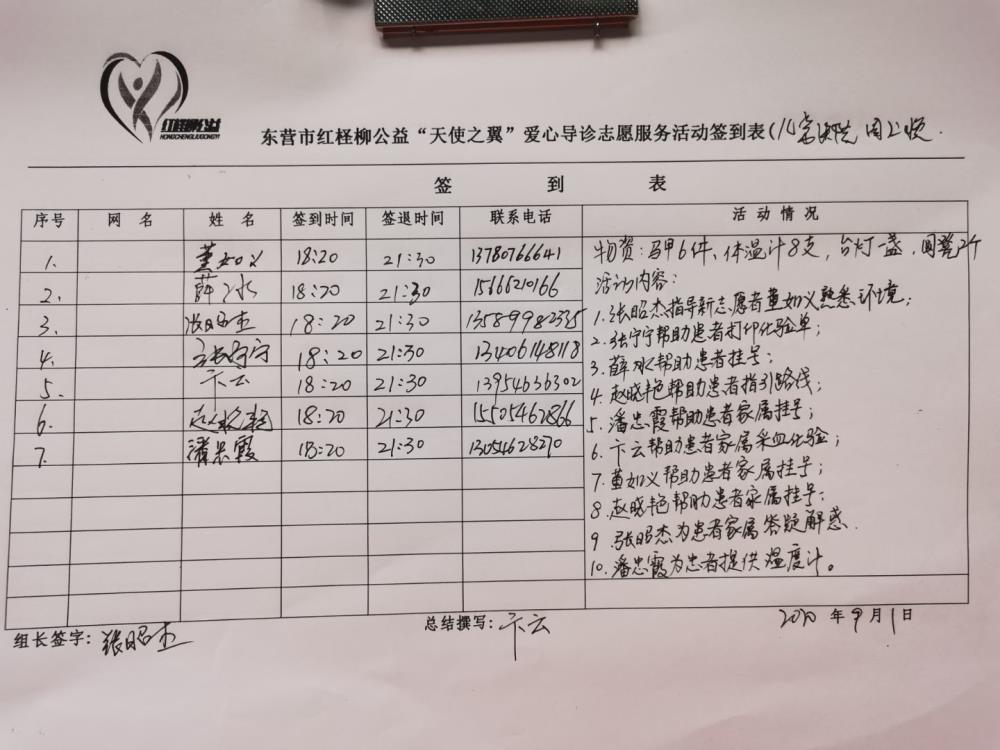 红柽柳公益
HONGCHENGLIUGONGYI
东营市红柽柳公益“天使之翼”爱心导诊志愿服务活动签到表(儿童医院 周二晚
签 到 表
序号 网 名 姓 名 签到时间 签退时间 联系电话 活 动 情 况
1. 董如义 18:20 21:30 13780766641
2. 薛冰 18:20 21:30 1566210166
3. 张昭杰 18:20 21:30 13589982335
4. 张宁宁 18:20 21:30 13406148118
5. 卞云 18:20 21:30 13954636302
6. 赵晓艳 18:20 21:30 15505462866
7. 潘忠霞 18:20 21:30 13054628270
物资:马甲6件、体温计8支,台灯一盏,圆凳2个
活动内容:
1.张昭杰指导新志愿者董如义熟悉环境;
2.张宁宁帮助患者打印化验单;
3.薛冰帮助患者挂号;
4.赵晓艳帮助患者指引路线;
5.潘忠霞帮助患者家属挂号;
6.卞云帮助患者家属采血化验;
7.董如义帮助患者家属挂号;
8.赵晓艳帮助患者家属挂号:
9.张昭杰为患者家属答疑解惑.
10.潘忠霞为患者提供温度计。
组长签字:张昭杰 总结撰写:卞云 2020 年 9 月 1 日